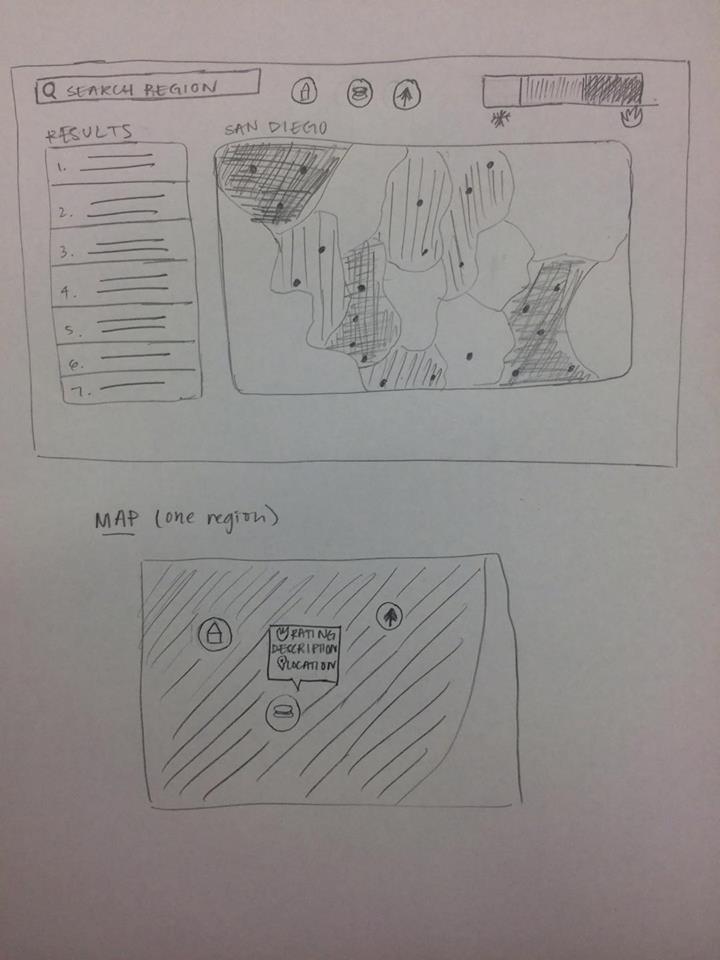 SEARCH REGION
RESULTS
SAN DIEGO
1.
2.
3.
4.
5.
6.
7.
MAP (one region)
RATING
DESCRIPTION
LOCATION